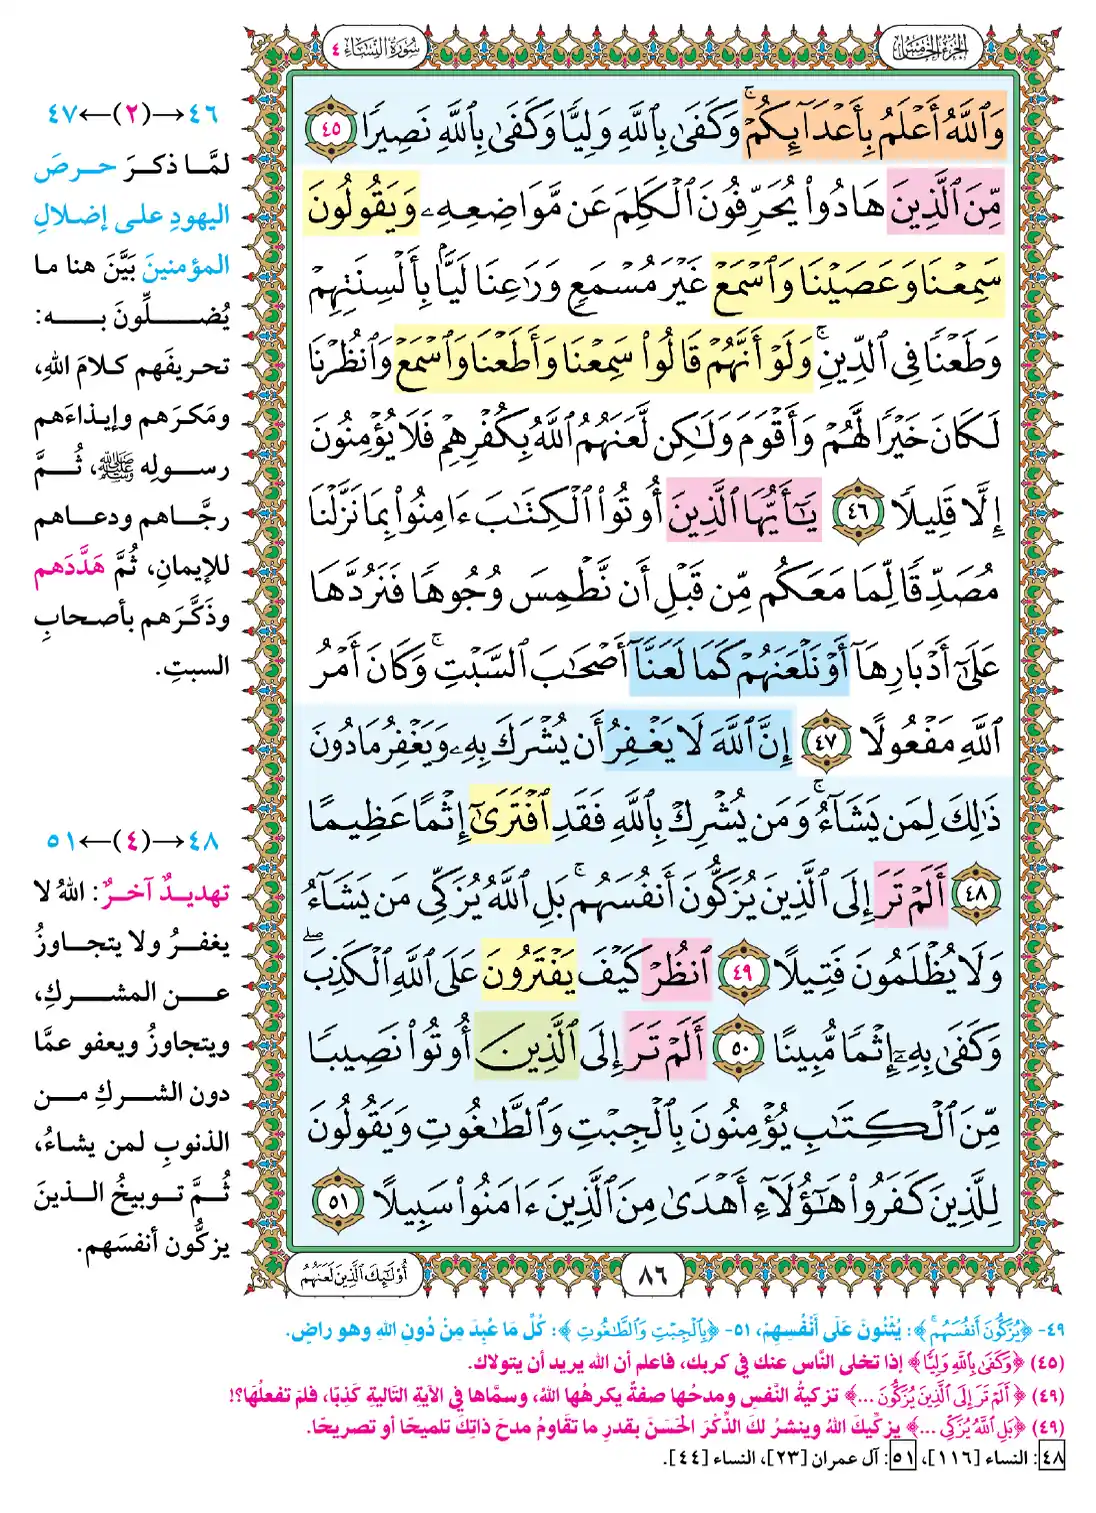 الجزء الخامس
سورة النساء ٤
وَٱللَّهُ أَعْلَمُ بِأَعْدَآئِكُمْ ۚ وَكَفَىٰ بِٱللَّهِ وَلِيًّا وَكَفَىٰ بِٱللَّهِ نَصِيرًا ٤٥
مِّنَ ٱلَّذِينَ هَادُوا۟ يُحَرِّفُونَ ٱلْكَلِمَ عَن مَّوَاضِعِهِۦ وَيَقُولُونَ
سَمِعْنَا وَعَصَيْنَا وَٱسْمَعْ غَيْرَ مُسْمَعٍ وَرَٰعِنَا لَيًّۢا بِأَلْسِنَتِهِمْ
وَطَعْنًا فِى ٱلدِّينِ ۚ وَلَوْ أَنَّهُمْ قَالُوا۟ سَمِعْنَا وَأَطَعْنَا وَٱسْمَعْ وَٱنظُرْنَا
لَكَانَ خَيْرًا لَّهُمْ وَأَقْوَمَ وَلَـٰكِن لَّعَنَهُمُ ٱللَّهُ بِكُفْرِهِمْ فَلَا يُؤْمِنُونَ
إِلَّا قَلِيلًا ٤٦ يَـٰٓأَيُّهَا ٱلَّذِينَ أُوتُوا۟ ٱلْكِتَـٰبَ ءَامِنُوا۟ بِمَا نَزَّلْنَا
مُصَدِّقًا لِّمَا مَعَكُم مِّن قَبْلِ أَن نَّطْمِسَ وُجُوهًا فَنَرُدَّهَا
عَلَىٰٓ أَدْبَارِهَآ أَوْ نَلْعَنَهُمْ كَمَا لَعَنَّآ أَصْحَـٰبَ ٱلسَّبْتِ ۚ وَكَانَ أَمْرُ
ٱللَّهِ مَفْعُولًا ٤٧ إِنَّ ٱللَّهَ لَا يَغْفِرُ أَن يُشْرَكَ بِهِۦ وَيَغْفِرُ مَا دُونَ
ذَٰلِكَ لِمَن يَشَآءُ ۚ وَمَن يُشْرِكْ بِٱللَّهِ فَقَدِ ٱفْتَرَىٰٓ إِثْمًا عَظِيمًا
٤٨ أَلَمْ تَرَ إِلَى ٱلَّذِينَ يُزَكُّونَ أَنفُسَهُم ۚ بَلِ ٱللَّهُ يُزَكِّى مَن يَشَآءُ
وَلَا يُظْلَمُونَ فَتِيلًا ٤٩ ٱنظُرْ كَيْفَ يَفْتَرُونَ عَلَى ٱللَّهِ ٱلْكَذِبَ ۖ
وَكَفَىٰ بِهِۦٓ إِثْمًا مُّبِينًا ٥٠ أَلَمْ تَرَ إِلَى ٱلَّذِينَ أُوتُوا۟ نَصِيبًا
مِّنَ ٱلْكِتَـٰبِ يُؤْمِنُونَ بِٱلْجِبْتِ وَٱلطَّـٰغُوتِ وَيَقُولُونَ
لِلَّذِينَ كَفَرُوا۟ هَـٰٓؤُلَآءِ أَهْدَىٰ مِنَ ٱلَّذِينَ ءَامَنُوا۟ سَبِيلًا ٥١
٨٦
أُو۟لَـٰٓئِكَ ٱلَّذِينَ لَعَنَهُمُ
٤٦→(٢)←٤٧
لمَّا ذكرَ حرصَ
اليهودِ على إضلالِ
المؤمنينَ بَيَّنَ هنا ما
يُضلِّونَ به:
تحريفَهم كلامَ اللهِ،
ومَكرَهم وإيذاءَهم
رسولِه ﷺ، ثُمَّ
رجَّاهم ودعاهم
للإيمانِ، ثُمَّ هَدَّدَهم
وذَكَّرَهم بأصحابِ
السبتِ.
٤٨→(٤)←٥١
تهديدٌ آخرٌ: اللهُ لا
يغفرُ ولا يتجاوزُ
عن المشركِ،
ويتجاوزُ ويعفو عمَّا
دون الشركِ من
الذنوبِ لمن يشاءُ،
ثُمَّ توبيخُ الذينَ
يزكُّون أنفسَهم.
٤٩- ﴿يُزَكُّونَ أَنفُسَهُم ۚ﴾: يُثْنُونَ عَلَى أَنْفُسِهِمْ، ٥١- ﴿بِٱلْجِبْتِ وَٱلطَّـٰغُوتِ﴾: كُلِّ مَا عُبِدَ مِنْ دُونِ اللهِ وهو راضٍ.
(٤٥) ﴿وَكَفَىٰ بِٱللَّهِ وَلِيًّا﴾ إذا تخلى النَّاس عنك في كربك، فاعلم أن الله يريد أن يتولاك.
(٤٩) ﴿أَلَمْ تَرَ إِلَى ٱلَّذِينَ يُزَكُّونَ ...﴾ تزكيةُ النَّفسِ ومدحُها صفةٌ يكرهُها اللهُ، وسمَّاها في الآيةِ التَّاليةِ كَذِبًا، فلمَ تفعلُها؟!
(٤٩) ﴿بَلِ ٱللَّهُ يُزَكِّى ...﴾ يزكِّيكَ اللهُ وينشرُ لكَ الذِّكْرَ الحَسَنَ بقدرِ ما تقاومُ مدحَ ذاتِكَ تلميحًا أو تصريحًا.
٤٨: النساء [١١٦]، ٥١: آل عمران [٢٣]، النساء [٤٤].